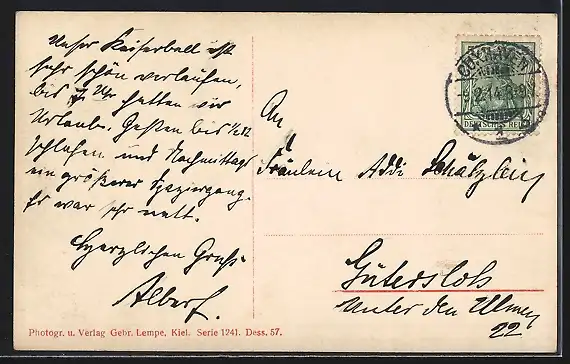 Unser Kaiserball ist
sehr schön verlaufen,
bis 7 Uhr hatten wir
Urlaub. Gestern bis ½12
schlafen und Nachmittags
ein größerer Spaziergang.
Es war sehr nett.
Herzlichen Gruß
Albert.
Photogr. u. Verlag Gebr. Lempe, Kiel. Serie 1241. Dess. 57.
CUXHAVEN
2.14.
DEUTSCHES REICH
An
Fräulein Addi Schätzlein
Gütersloh
Unter den Ulmen
22